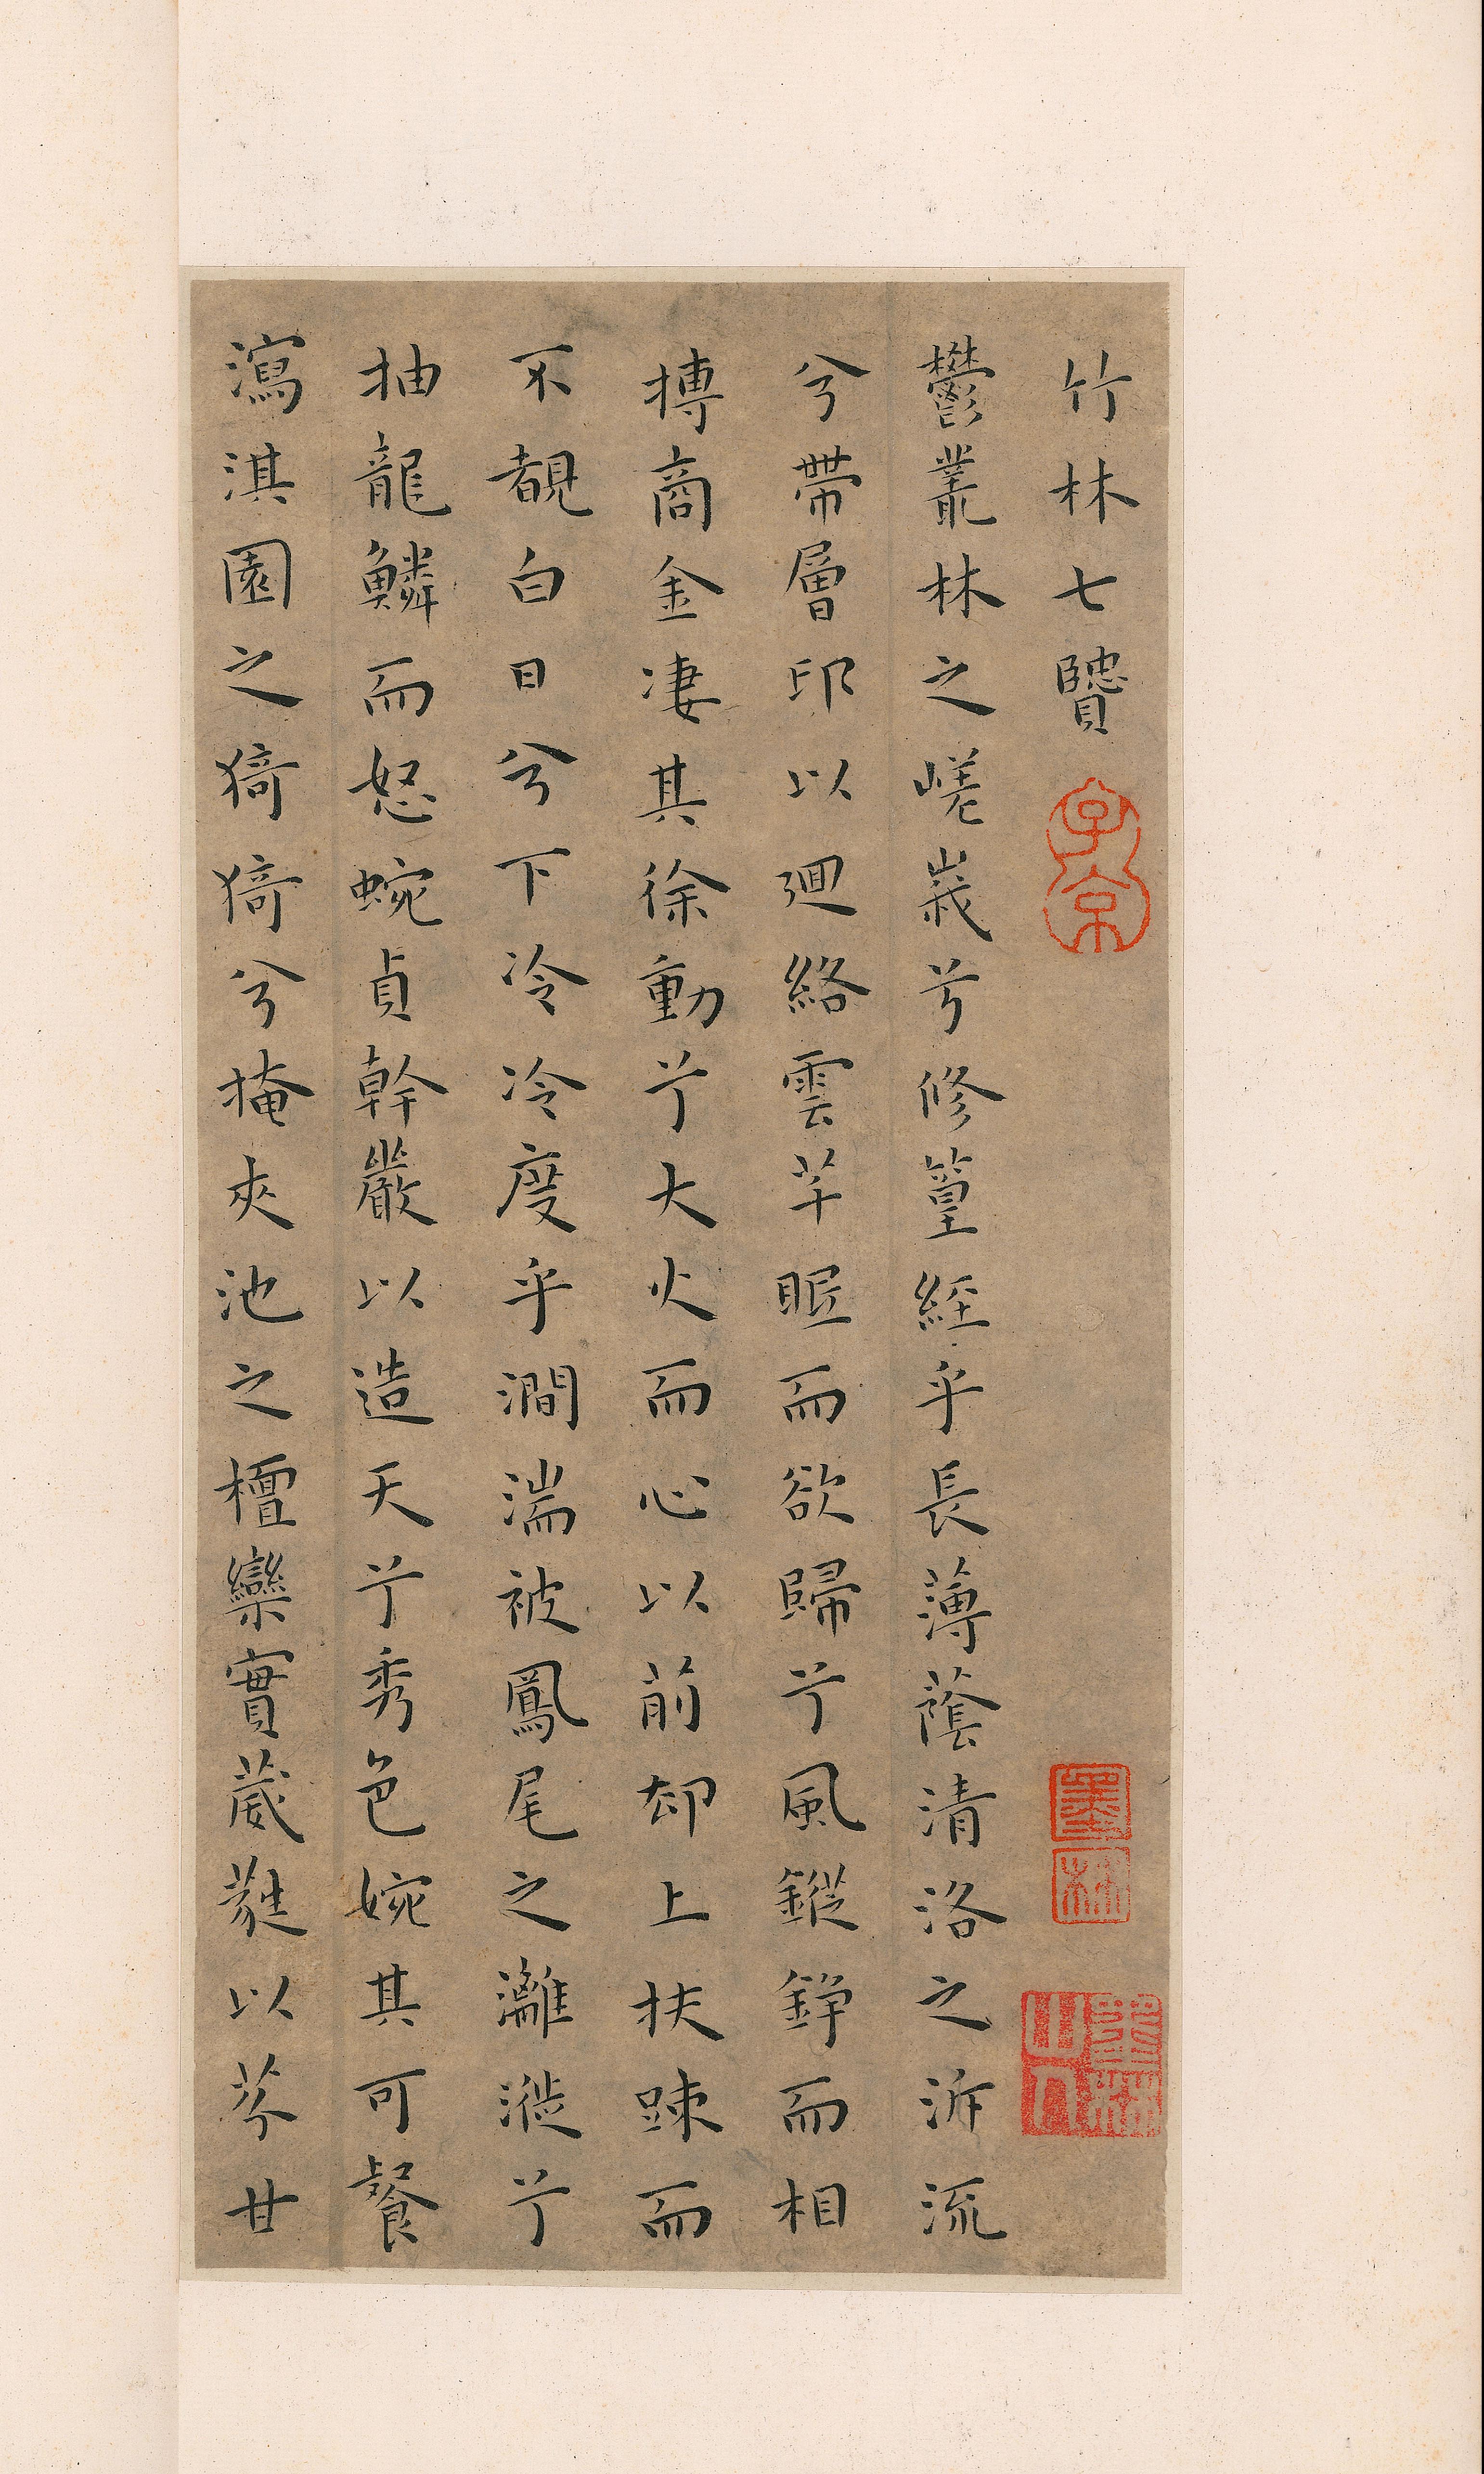 竹林七賢
鬱叢林之嵯峩兮修篁經乎長薄蔭清洛之泝流
兮帶層邙以迴絡雲芊眠而欲歸兮風鏦錚而相
摶商金凄其徐動兮大火而心以前却上扶疎而
不覩白日兮下冷冷度乎澗湍被鳳尾之灕漇兮
抽龍鱗而怒蜿貞幹嚴以造天兮秀色婉其可餐
瀉淇園之猗猗兮掩夾池之檀欒實葳蕤以芬甘
子京
墨林
墨林山人